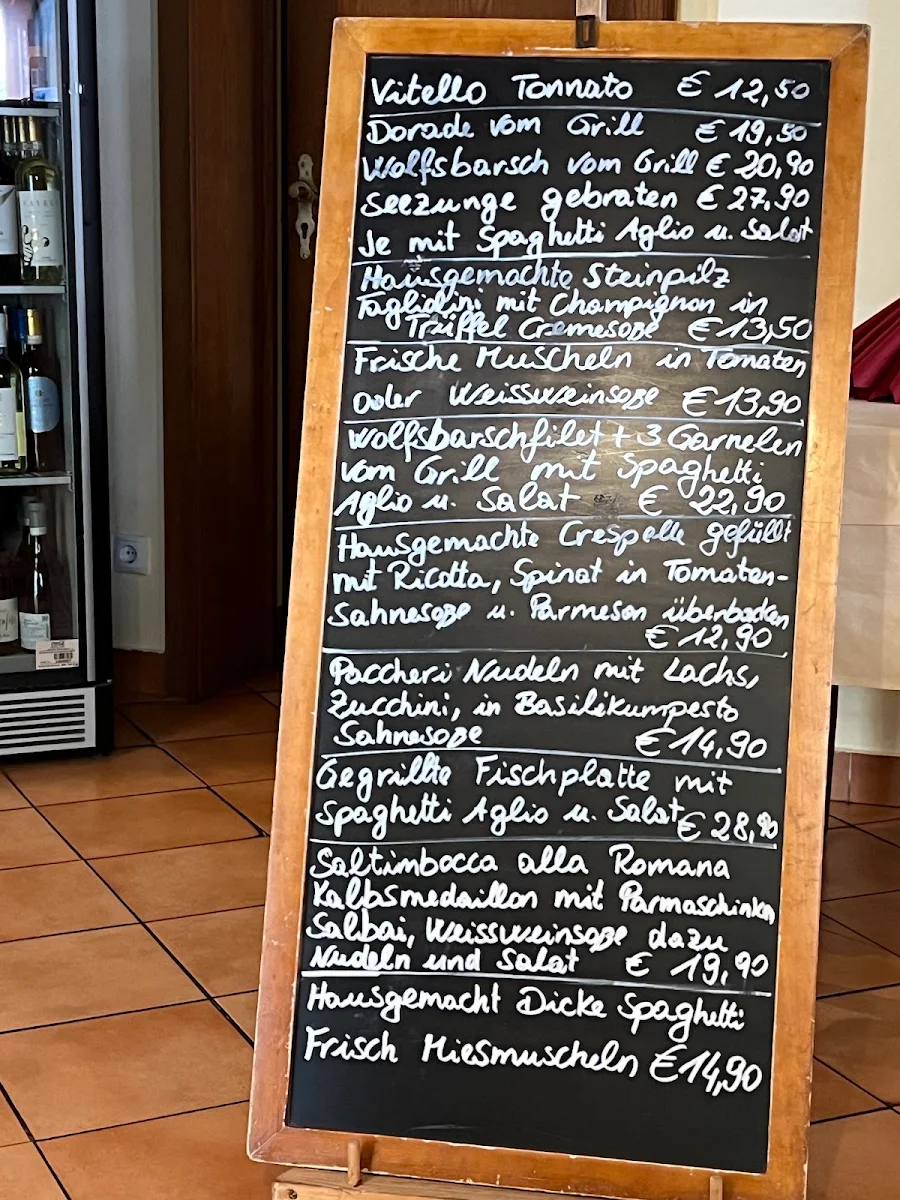 Vitello Tonnato € 12,50
Dorade vom Grill € 19,50
Wolfsbarsch vom Grill € 20,90
Seezunge gebraten € 27,90
Je mit Spaghetti Aglio u. Salat
Hausgemachte Steinpilz
Tagliolini mit Champignon in
Trüffel Cremesoße € 13,50
Frische Muscheln in Tomaten
oder Weissweinsoße € 13,90
Wolfsbarschfilet + 3 Garnelen
vom Grill mit Spaghetti
Aglio u. Salat € 22,90
Hausgemachte Crespelle gefüllt
mit Ricotta, Spinat in Tomaten-
Sahnesoße u. Parmesan überbacken
€ 12,90
Paccheri Nudeln mit Lachs,
Zucchini, in Basilikumpesto
Sahnesoße € 14,90
Gegrillte Fischplatte mit
Spaghetti Aglio u. Salat € 28,90
Saltimbocca alla Romana
Kalbsmedaillon mit Parmaschinken
Salbai, Weissweinsoße dazu
Nudeln und Salat € 19,90
Hausgemacht Dicke Spaghetti
Frisch Miesmuscheln € 14,90